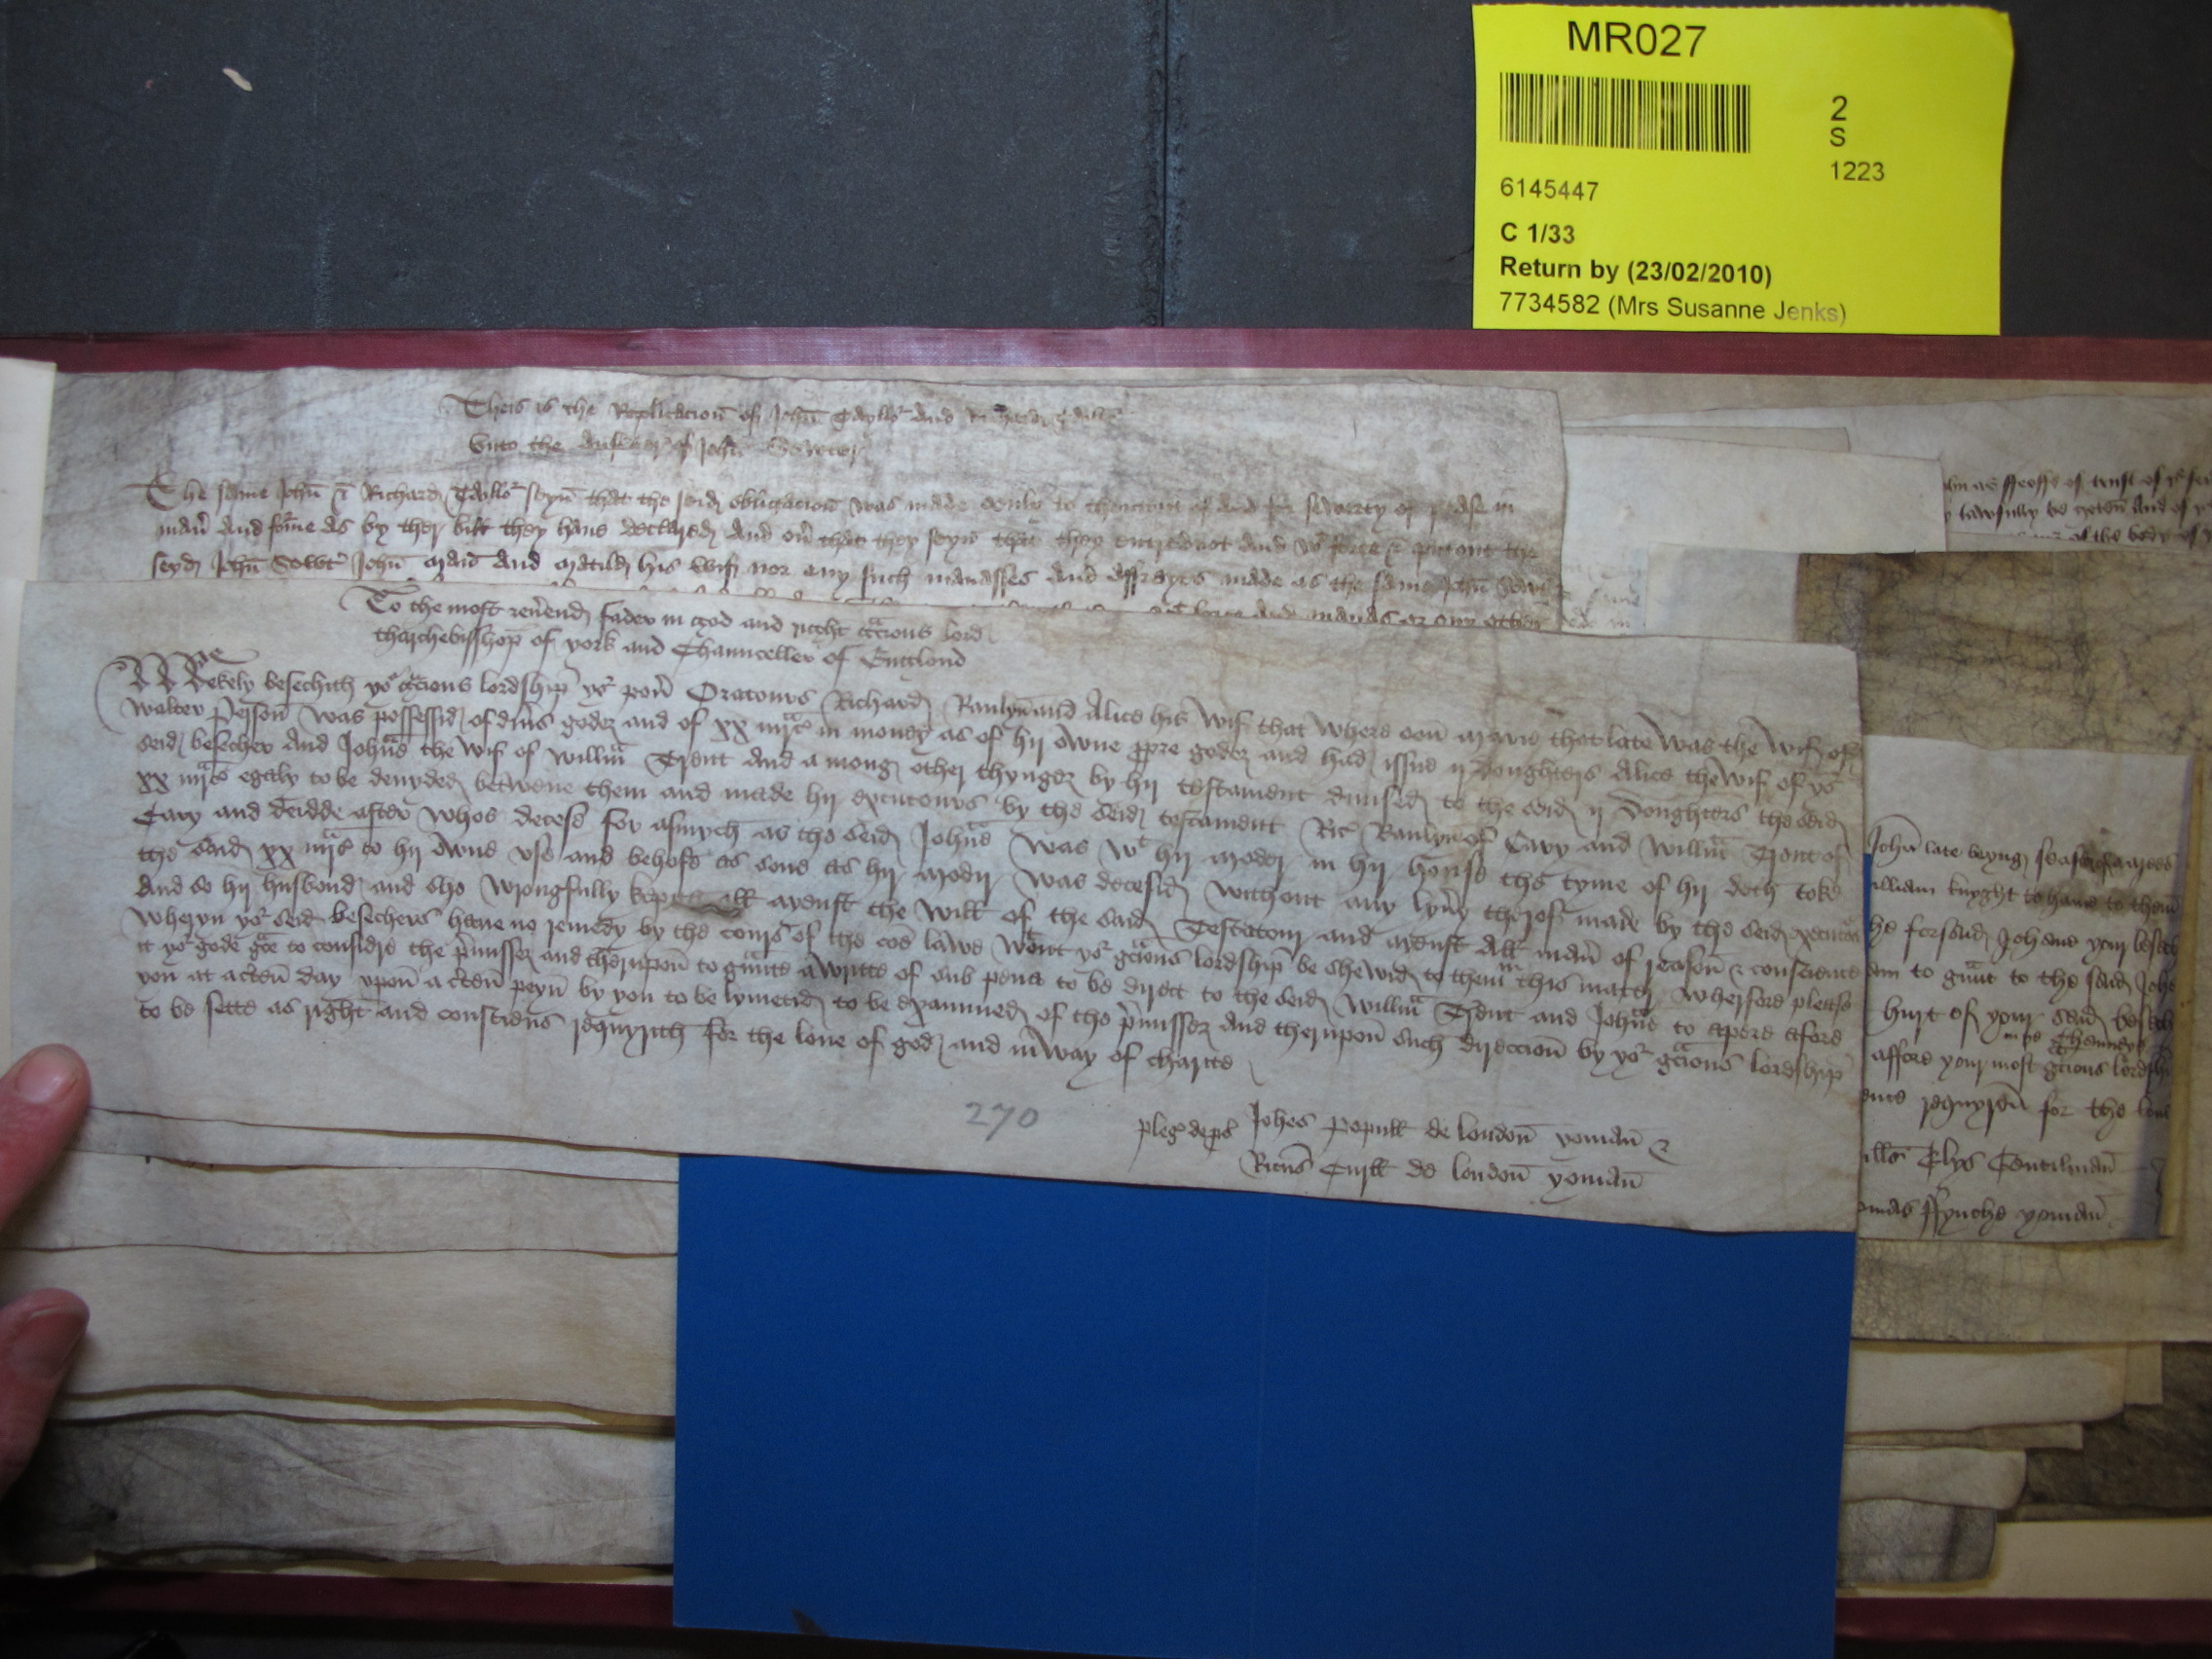 MR027
2
S
1223
6145447
C 1/33
Return by (23/02/2010)
7734582 (Mrs Susanne Jenks)
Theis is the Replicacion of John Tayllor and Richard
Vnto the answer of John
The same John & Richard Tayllor seyn that the seid obligacion was made oonly to thentent of and for seuerty of pease in
and forme as by ther bill they haue declared and that they seyn that they entred not and force & put out the
seyd John John and Matild his wif nor any such manasses and affrayes made as the same John
To the most reuerend fader in god and right gracious lord
tharchebisshop of york and Chaunceller of Englond
Mekely besechith yor gracious lordship yor pore Oratours Richard Raulyn and Alice his wif that where oon Mare that late was the wif of
Walter Person was possessid of diuers godes and of xx mrc in money as of hir owne propre godes and had issue ij doughters Alice the wif of yor
seid besecher and Johne the wif of Willm Trent and among other thynges by hir testament diuised to the seid ij doughters the seid
xx mrcs egaly to be deuyded betwene them and made hir executours by the seid testament Ric Raulyn of Cary and Willm Trent of
Cary and deidde after whos decese for asmych as the seid Johne was wt hir moder in hir house the tyme of hir deth toke
the seid xx mrcs to hir owne vse and behofe as sone as hir modir was decesid without any lyuery therof made by the seid executors
and so hir husbond and she wrongfully kepith all ayenst the will of the seid Testatour and ayenst all maner of reason & consciens
wheryn yor seid besechers haue no remedy by the cours of the coen lawe wtout yor gracious lordship be shewid to them in this mater Wherfore please
it yor gode grace to considre the premisses and therupon to graunte a writte of sub pena to be direct to the seid Willm Trent and Johne to apere afore
you at a certen day vpon a certen peyn by you to be lymeted to be examined of the premisses and therupon such direccion by yor gracious lordship
to be sette as right and consciens requyrith for the loue of god and in way of charite
270
pleg de ps Johes Popull de london yoman &
Ricus Cuill de london yoman
as ffeoffe of trust of
lawfully be goten and of
of the body of
John late beyng seased
illiam knyght to haue to them
he forseid Johane your besech
am to graunt to the seid John
hurt of your seid besech
in the Chauncery
affore your most gracious lordshi
ens requyren for the loue
illm Elys Gentilman
omas ffynche yoman